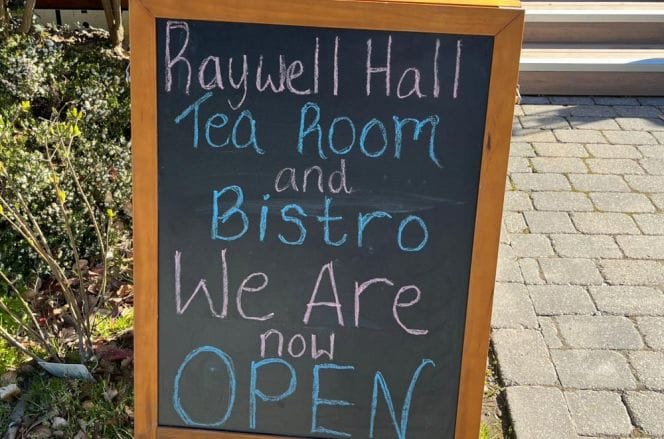 Raywell Hall
Tea Room
and
Bistro
We Are
now
OPEN